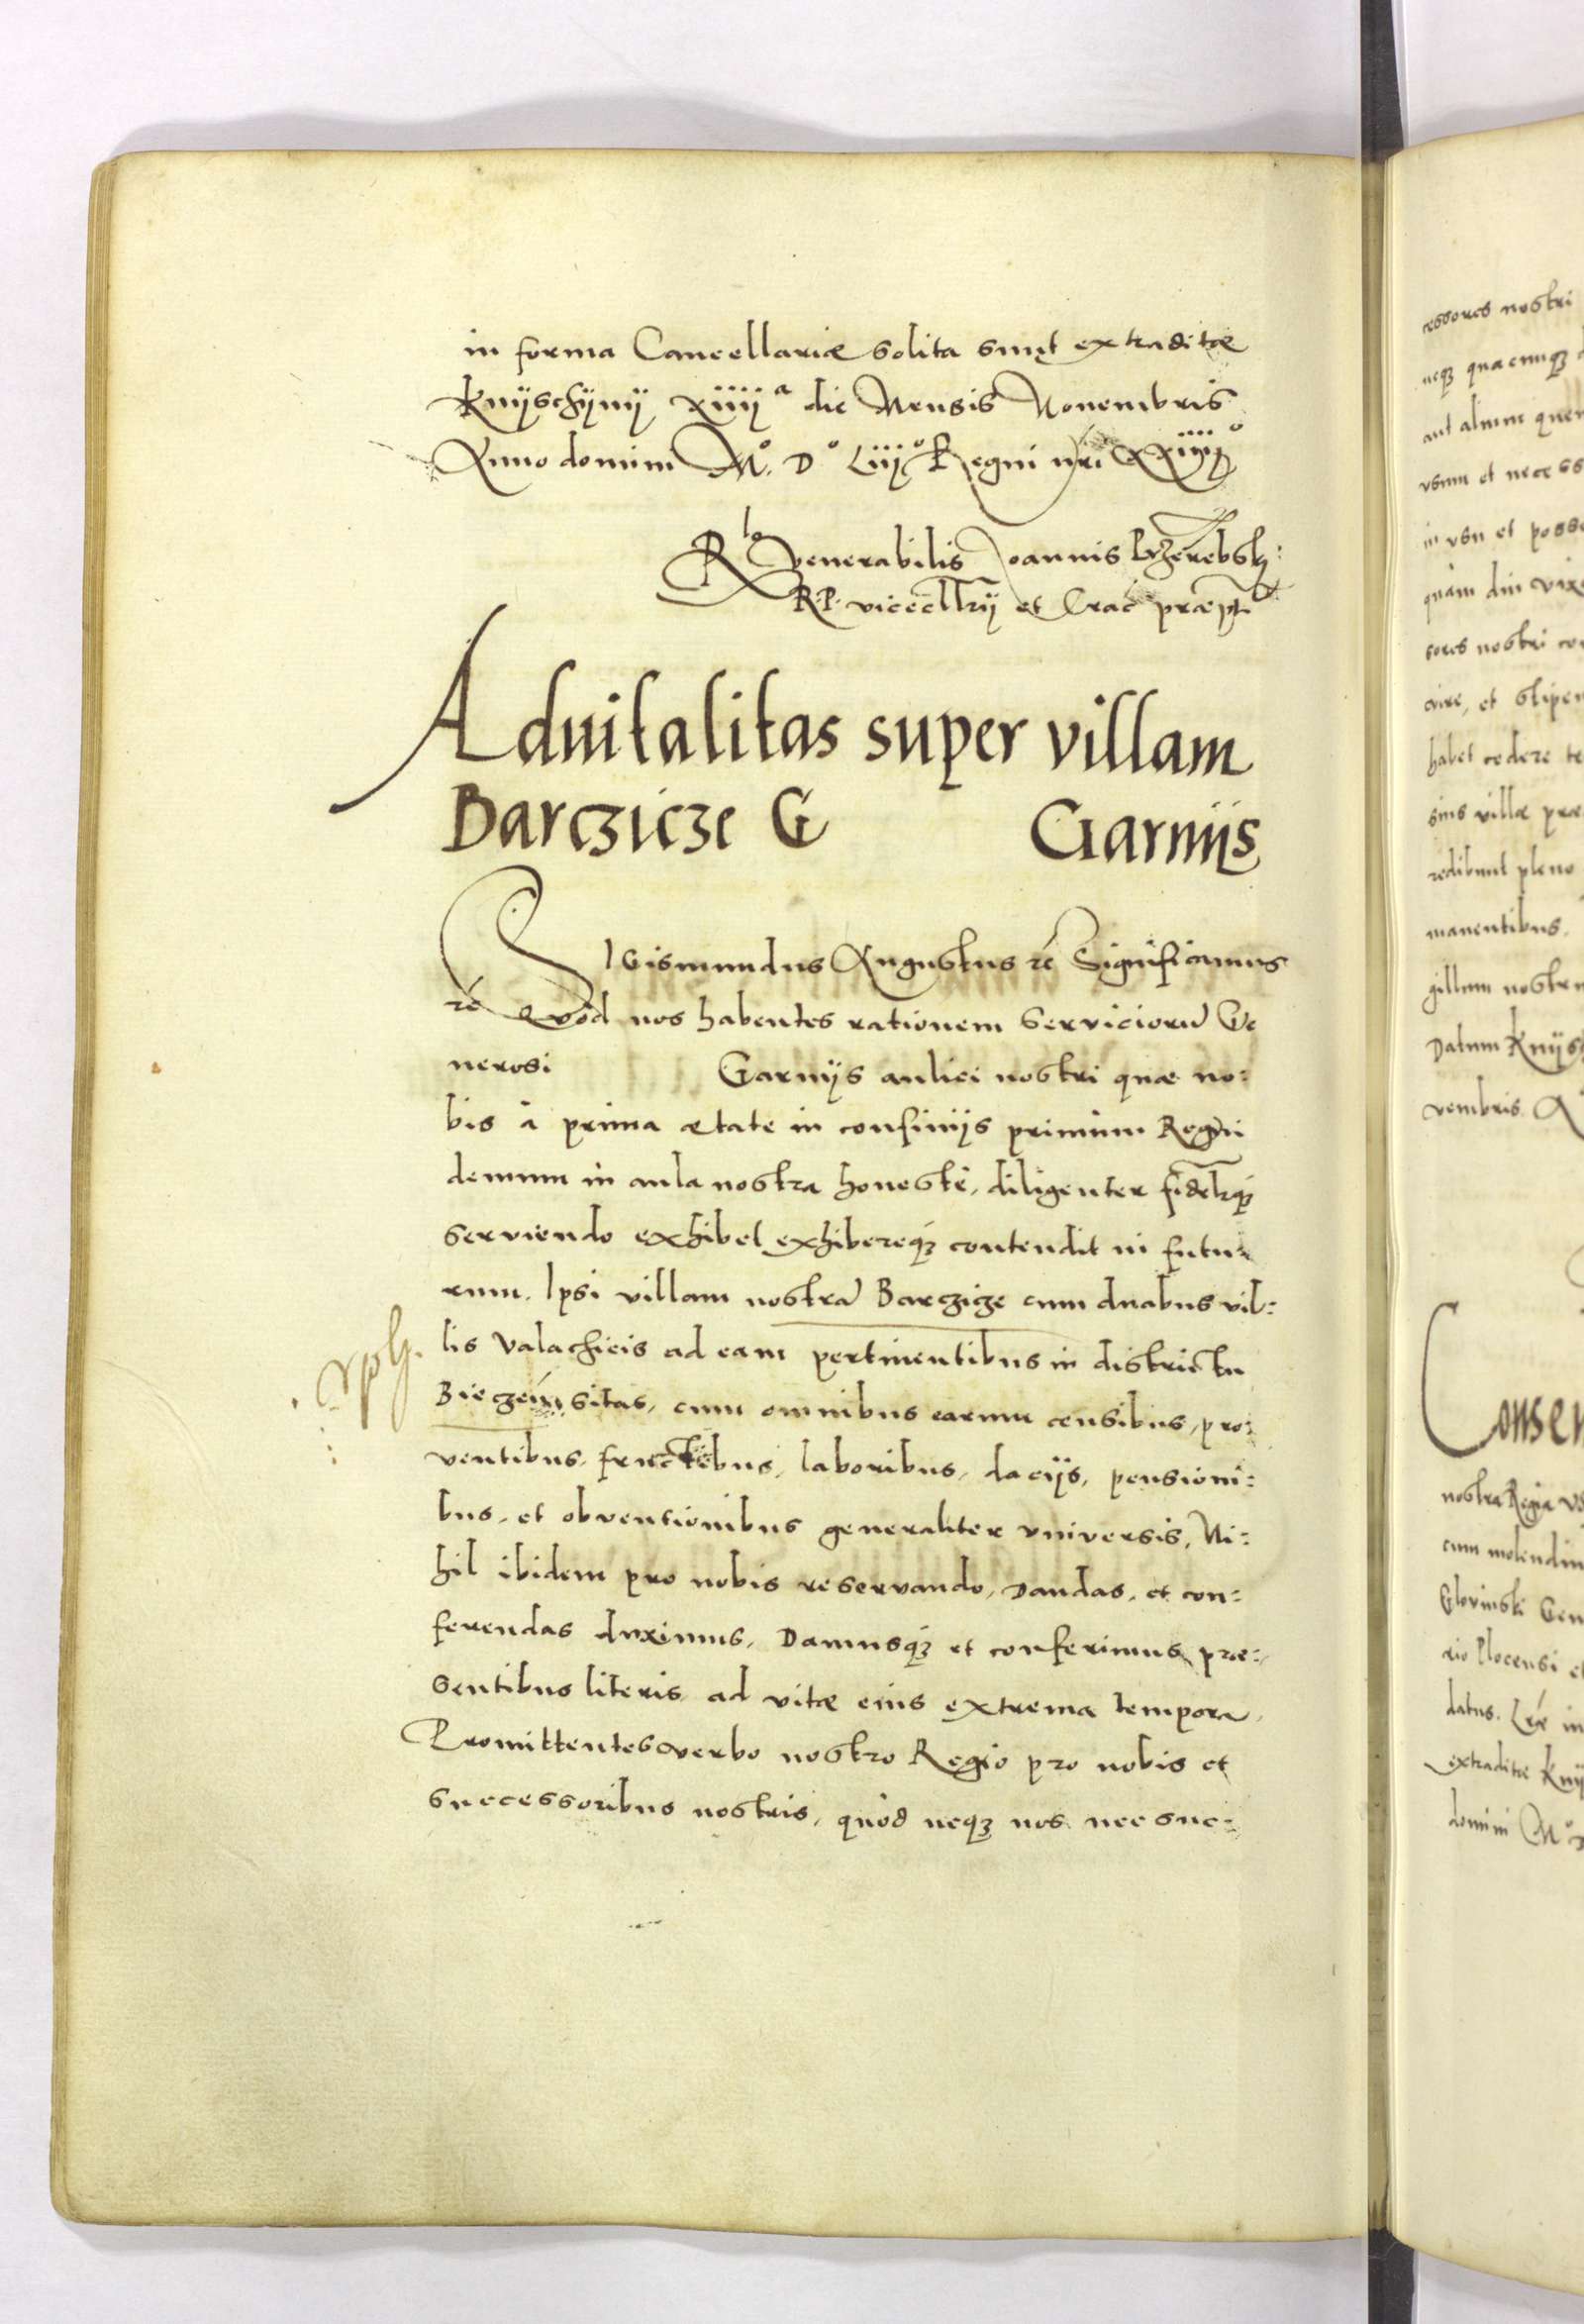 in forma Cancellariæ solita sunt extraditæ
Knÿschÿnÿ xiiij a die Mensis Nouembris
Anno domini Mº. Dº Liijº Regni nrĩ xxiiijº
Rlo venerabilis Joannis Przerebsky:
R. P. vicecllrij et Crac præpti
Aduitalitas super villam
Barczicze G Garnijs
SIGismundus Augustus rc̃ Significamus
rc̃ Quod nos habentes rationem serviciorũ Ge
nerosi Garnÿs aulici nostri quæ no:
bis à prima ætate in confinijs primùm Regni
demum in aula nostra honestè, diligenter fidelrq3
serviendo exhibet exhibereq3 contendit in futu:
rum. Ipsi villam nostrã Barczicze cum duabus vil:
lis Valachicis ad eam pertinentibus in districtu
Bieczeń sitas, cum omnibus earum censibus, pro:
ventibus, fructibus, laboribus, dacijs, pensioni:
bus, et obventionibus generaliter vniversis, Ni:
hil ibidem pro nobis reservando, Dandas, et con:
ferendas duximus, Damusq3 et conferimus præ:
sentibus literis ad vitæ eius extrema tempora,
Promittentes verbo nostro Regio pro nobis et
successoribus nostris, quòd neq3 nos nec suc:
cessores nostri
neq3 quacunq3
aut alium quem
vsum et necess
in vsu et posse
quàm diu vixe
sores nostri co
cire, et stipen
habet cedere te
sius villæ præ
redibunt pleno
manentibus.
gillum nostru
Datum Knÿs
vembris. A
Consen
nostra Regia vs
cum molendin
Glovinski Gen
rio Plocensi et
datus. Lræ in
extraditæ Knÿ
domini Mº D